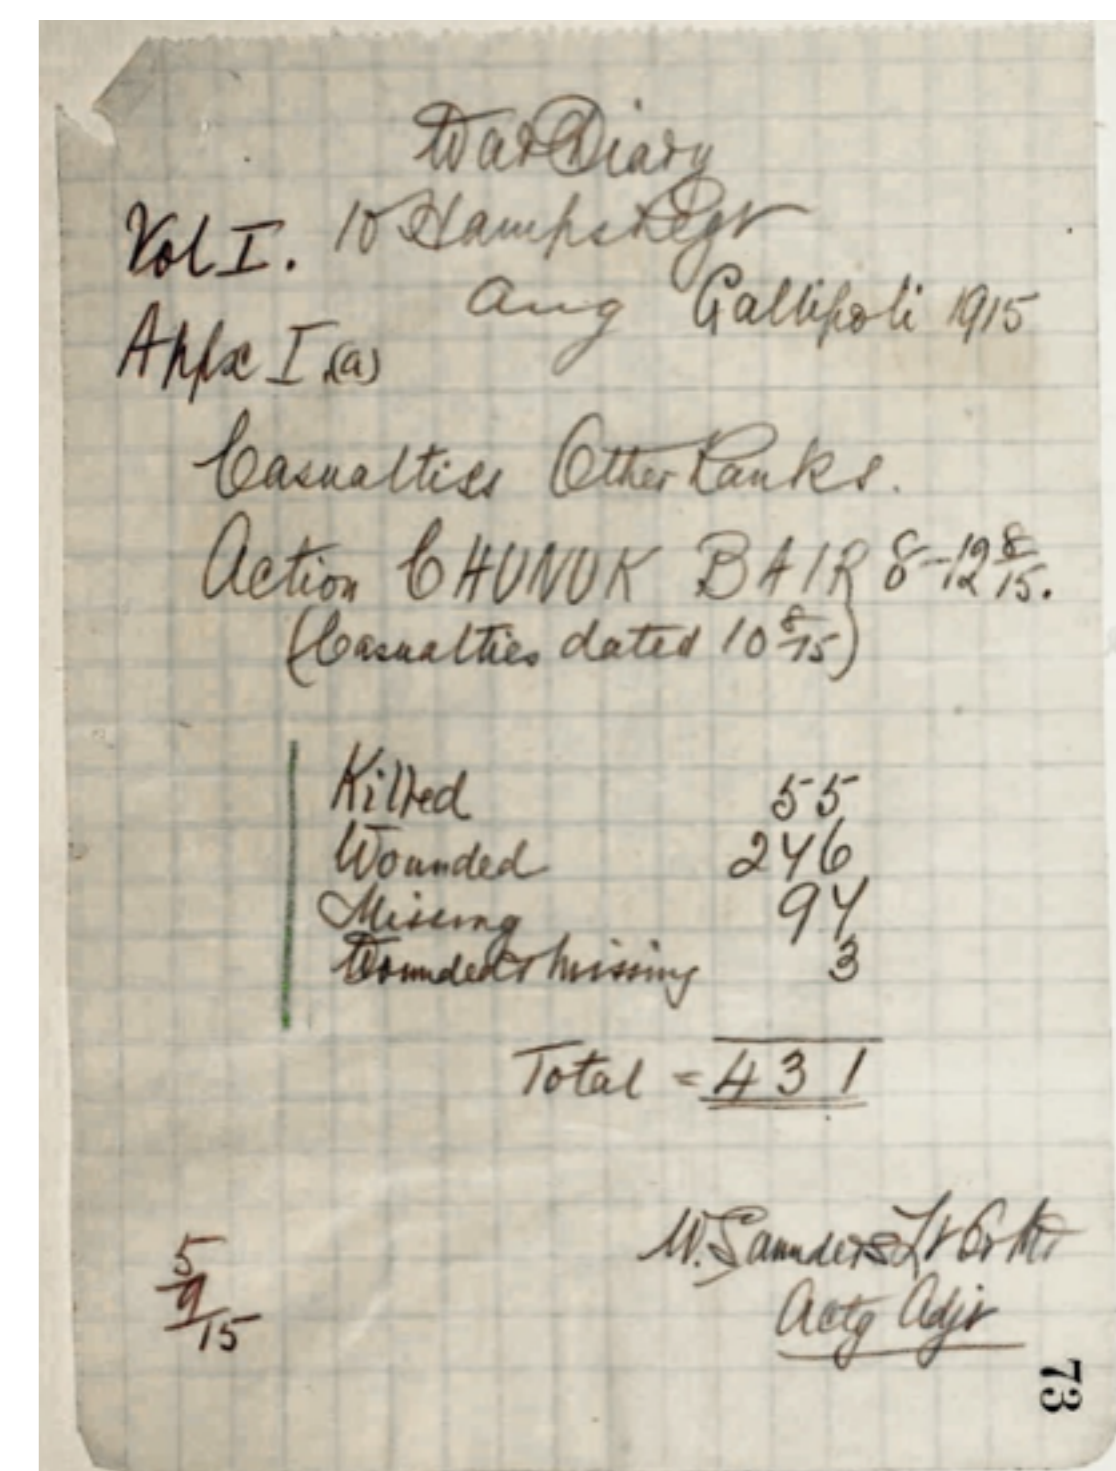 War Diary
Vol I. 10 Hamps Regt
Aug Gallipoli 1915
Appx I (a)
Casualties Other Ranks.
Action CHUNUK BAIR 8-12 8/15.
(Casualties dated 10 8/15)
Killed 55
Wounded 246
Missing 94
Wounded & missing 3
Total = 431
W. Saunders Lt Qr Mr
5/9/15
Actg Adjt
73